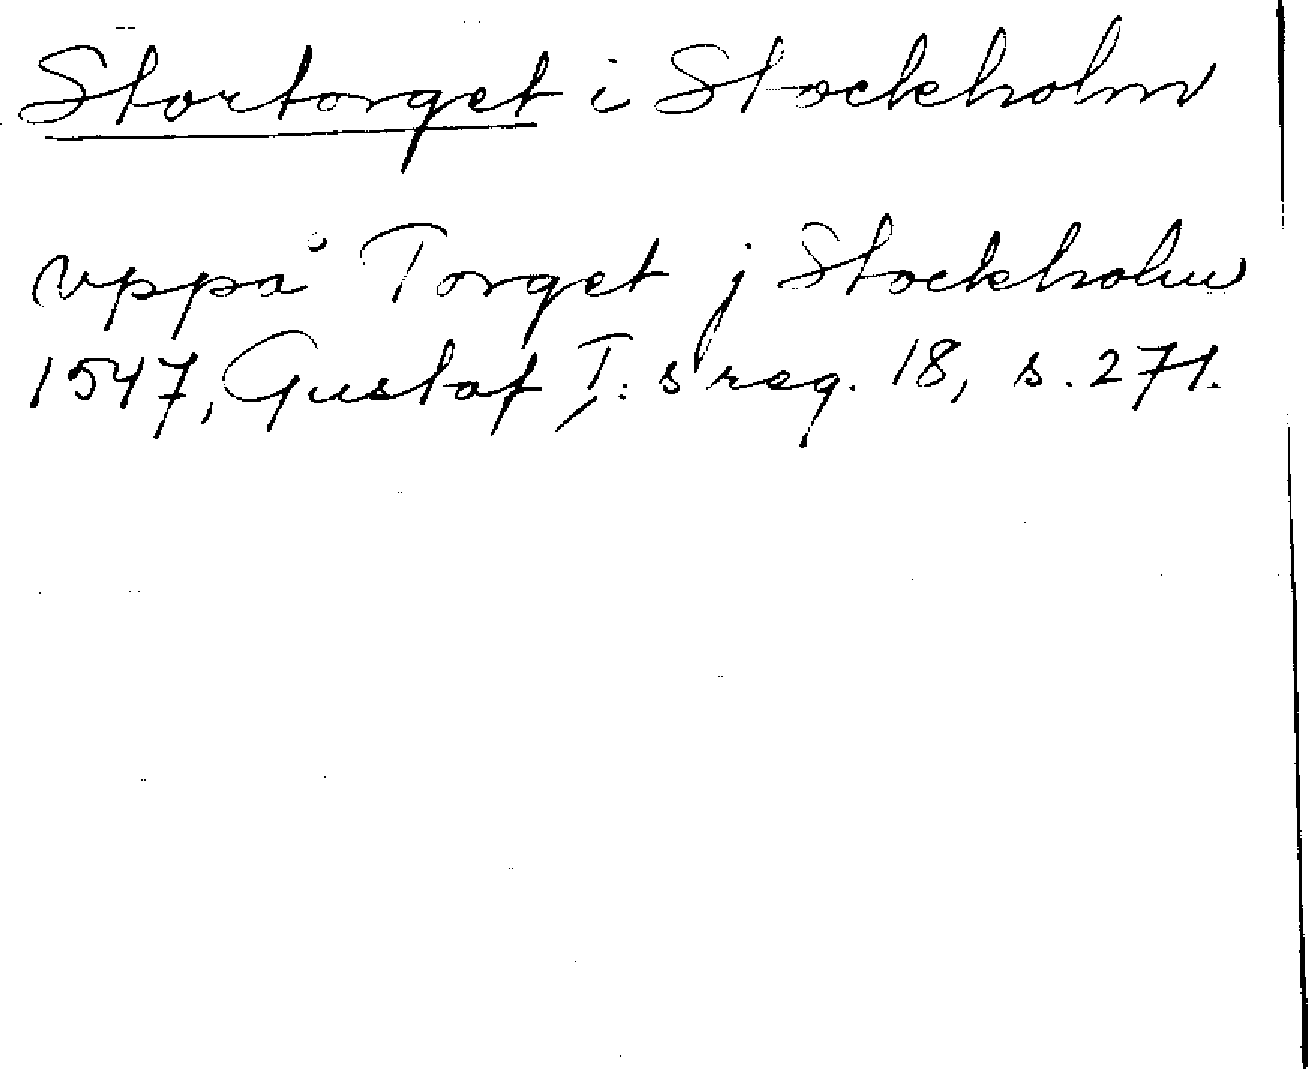 Stortorget i Stockholm
vppå Torget j Stockholm
1547, Gustaf I:s reg. 18, s. 271.